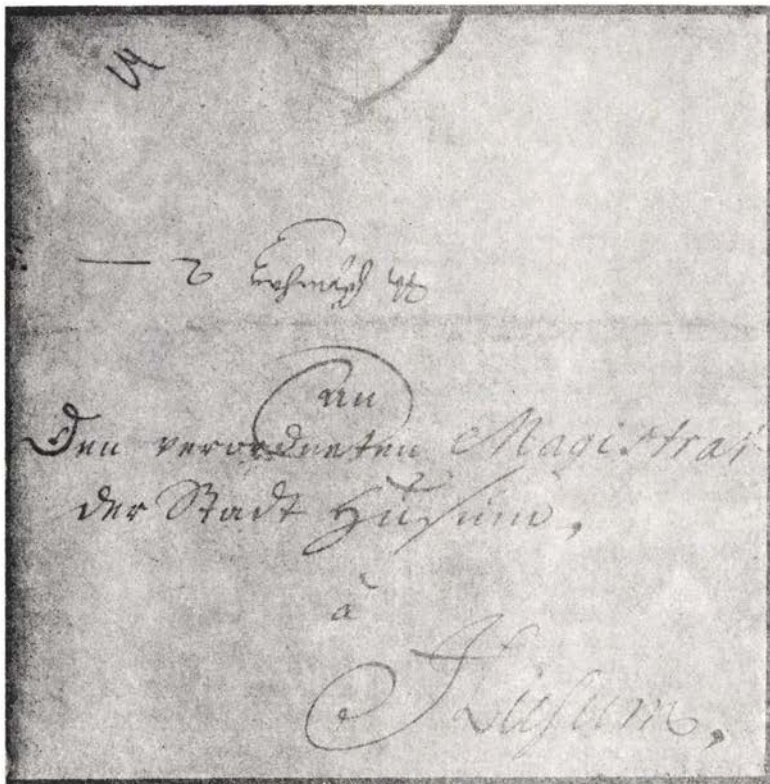 an
Den verordneten Magistrat
der Stadt Husum,
à
Husum,